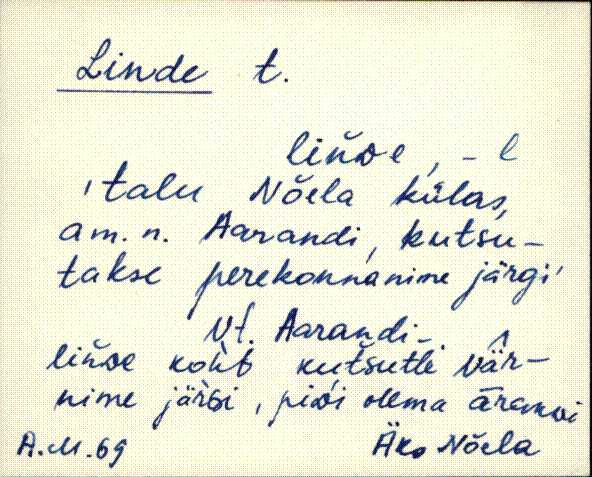 Linde t.
liňde, - l
'talu Nõela külas,
am. n. Aarandi, kutsu-
takse perekonnanime järgi'
Vt. Aarandi.
liňde koht kutsutti vär-
nime järgi, pidi olema
A.M. 69 Äks Nõela